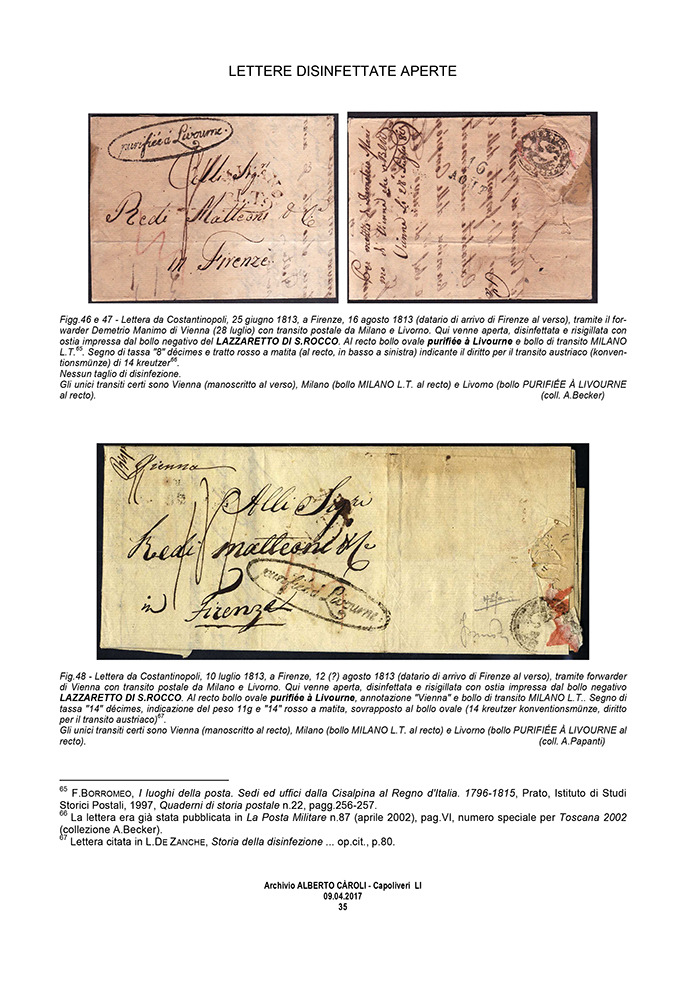 LETTERE DISINFETTATE APERTE
purifiée à Livourne.
Alli Sigri
Redi Matteoni & C.
in Firenze
16
AOUT
Figg.46 e 47 - Lettera da Costantinopoli, 25 giugno 1813, a Firenze, 16 agosto 1813 (datario di arrivo di Firenze al verso), tramite il for-
warder Demetrio Manimo di Vienna (28 luglio) con transito postale da Milano e Livorno. Qui venne aperta, disinfettata e risigillata con
ostia impressa dal bollo negativo del LAZZARETTO DI S.ROCCO. Al recto bollo ovale purifiée à Livourne e bollo di transito MILANO
L.T.65. Segno di tassa "8" décimes e tratto rosso a matita (al recto, in basso a sinistra) indicante il diritto per il transito austriaco (konven-
tionsmünze) di 14 kreutzer66.
Nessun taglio di disinfezione.
Gli unici transiti certi sono Vienna (manoscritto al verso), Milano (bollo MILANO L.T. al recto) e Livorno (bollo PURIFIÉE À LIVOURNE
al recto). (coll. A.Becker)
Vienna
Alli Sigri
Redi Matteoni & C
in Firenza
purifiée à Livourne.
Fig.48 - Lettera da Costantinopoli, 10 luglio 1813, a Firenze, 12 (?) agosto 1813 (datario di arrivo di Firenze al verso), tramite forwarder
di Vienna con transito postale da Milano e Livorno. Qui venne aperta, disinfettata e risigillata con ostia impressa dal bollo negativo
LAZZARETTO DI S.ROCCO. Al recto bollo ovale purifiée à Livourne, annotazione "Vienna" e bollo di transito MILANO L.T.. Segno di
tassa "14" décimes, indicazione del peso 11g e "14" rosso a matita, sovrapposto al bollo ovale (14 kreutzer konventionsmünze, diritto
per il transito austriaco)67.
Gli unici transiti certi sono Vienna (manoscritto al recto), Milano (bollo MILANO L.T. al recto) e Livorno (bollo PURIFIÉE À LIVOURNE al
recto). (coll. A.Papanti)
65 F.BORROMEO, I luoghi della posta. Sedi ed uffici dalla Cisalpina al Regno d'Italia. 1796-1815, Prato, Istituto di Studi
Storici Postali, 1997, Quaderni di storia postale n.22, pagg.256-257.
66 La lettera era già stata pubblicata in La Posta Militare n.87 (aprile 2002), pag.VI, numero speciale per Toscana 2002
(collezione A.Becker).
67 Lettera citata in L.DE ZANCHE, Storia della disinfezione ... op.cit., p.80.
Archivio ALBERTO CÀROLI - Capoliveri LI
09.04.2017
35